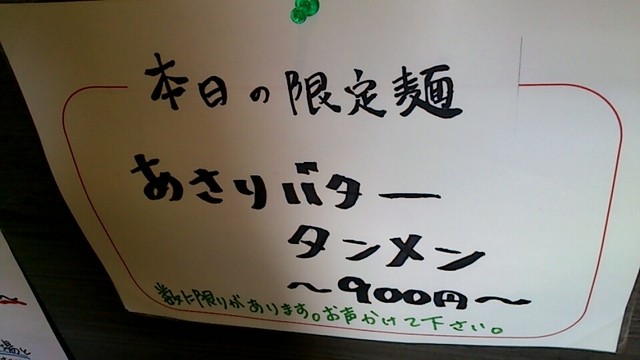 本日の限定麺
あさりバター
タンメン
～900円～
数に限りがあります。お声かけて下さい。